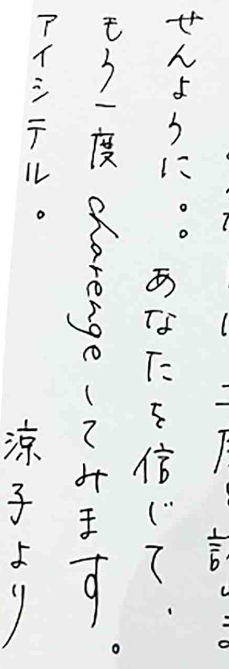 二度と許しま
せんように。。あなたを信じて、
もう一度charengeしてみます。
アイシテル。
涼子より